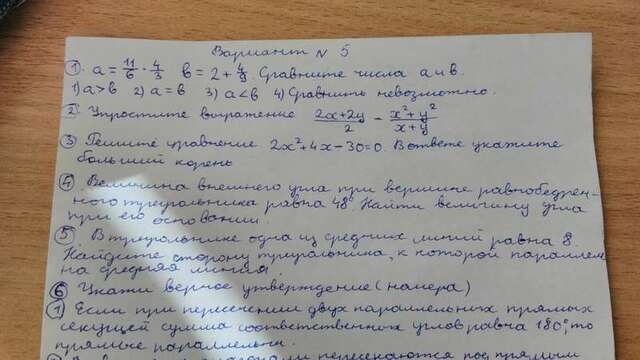 Вариант N 5
① a = 11/6 · 4/3 b = 2 + 4/9. Сравните числа a и b.
1) a > b 2) a = b 3) a < b 4) Сравнить невозможно.
② Упростите выражение (2x+2y)/2 − (x²+y²)/(x+y)
③ Решите уравнение 2x²+4x−30=0. В ответе укажите
больший корень
④ Величина внешнего угла при вершине равнобедрен-
ного треугольника равна 48°. Найти величину угла
при его основании.
⑤ В треугольнике одна из средних линий равна 8.
Найдите сторону треугольника, к которой параллель
на средняя линия.
⑥ Укажи верное утверждение (номера)
① Если при пересечении двух параллельных прямых
секущей сумма соответственных углов равна 180°, то
прямые параллельны.
пересекаются под прямым